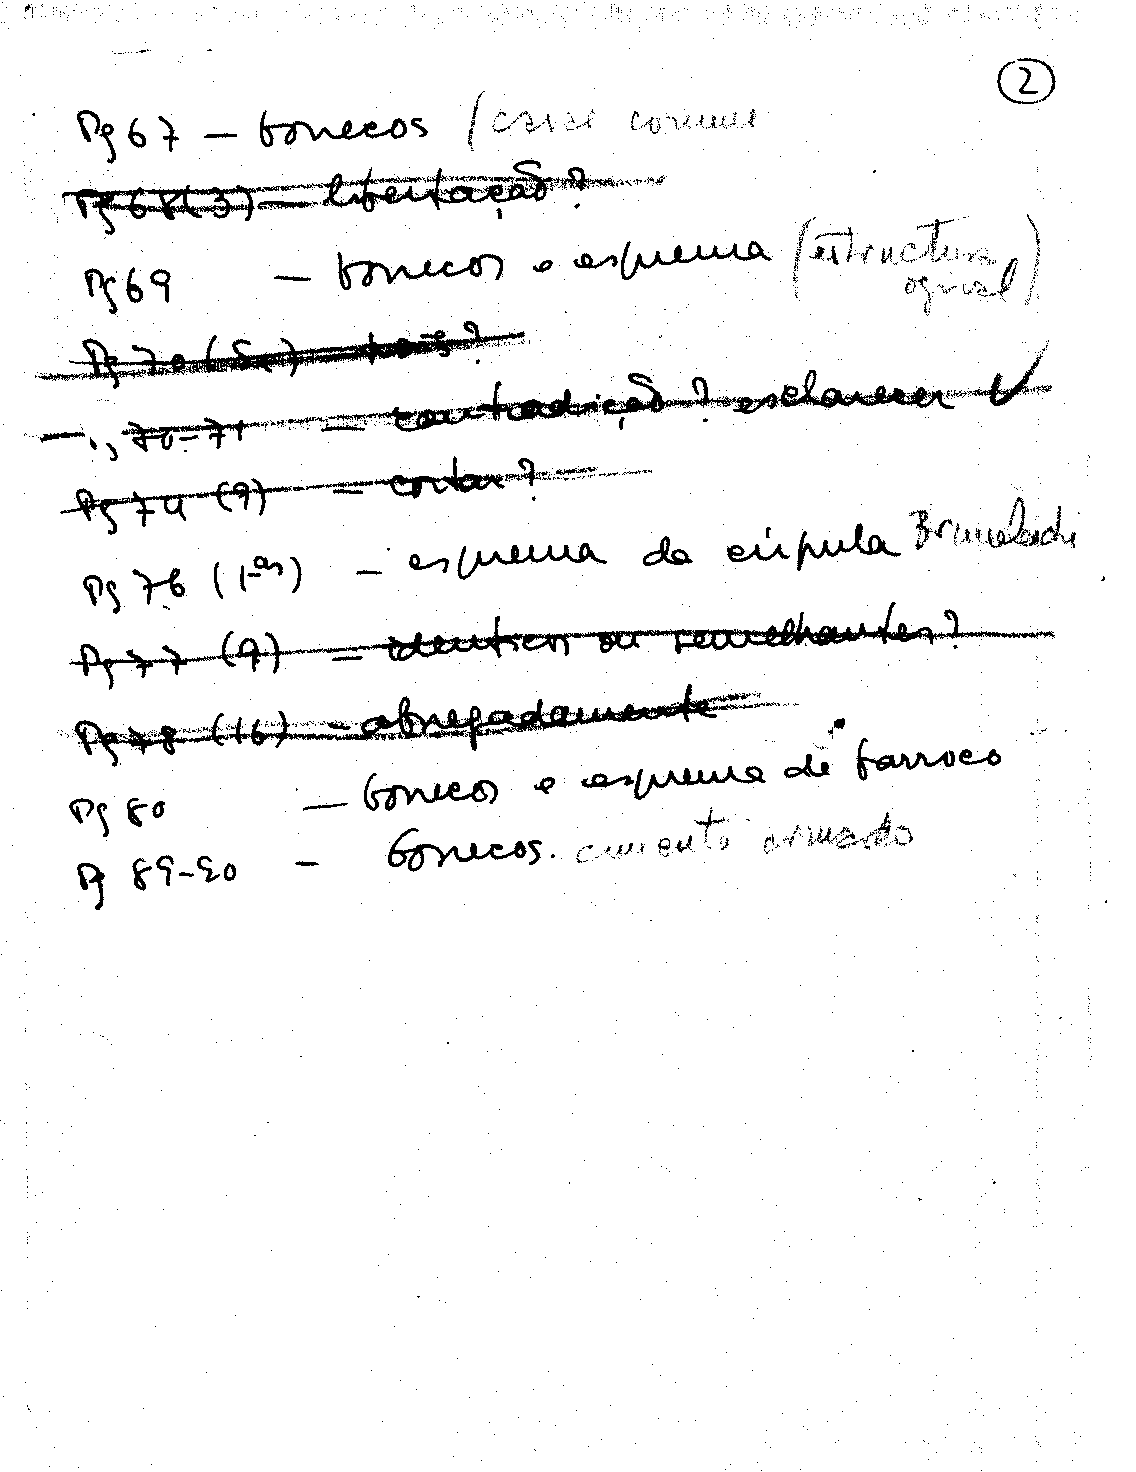 2
Pg 67 – bonecos (casal comum
Pg 68 (3) – libertação?
Pg 69 – bonecos e esquema (estructura
ogival)
Pg 70 (5ª) –
" 70-71 – contradição? esclarecer ✓
Pg 74 (9) – contar?
Pg 76 (1ªs) – esquema da cúpula Brunelleschi
Pg 77 (9) – identicos ou semelhantes?
Pg 78 (16) – abnegadamente
Pg 80 – bonecos e esquema de barroco
Pg 89-90 – bonecos. cimento armado